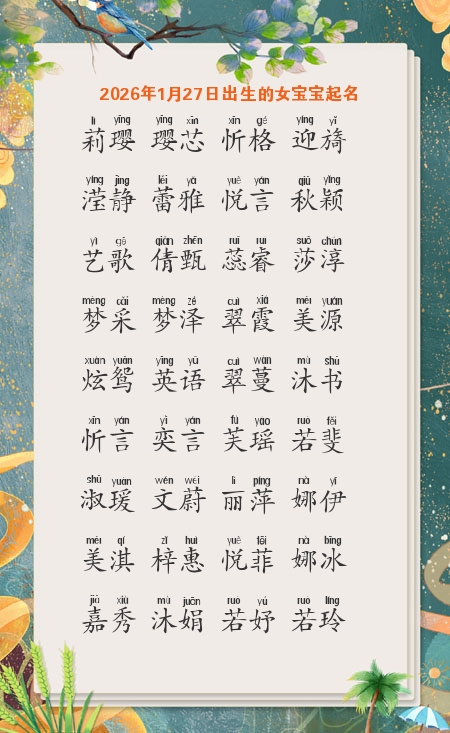 2026年1月27日出生的女宝宝起名
lì yīng yīng xīn xīn gé yíng yǐ
莉璎 璎芯 忻格 迎旖
yíng jìng lěi yǎ yuè yán qiū yǐng
滢静 蕾雅 悦言 秋颖
yì gē qiàn zhēn ruǐ ruì suō chún
艺歌 倩甄 蕊睿 莎淳
mèng cǎi mèng zé cuì xiá měi yuán
梦采 梦泽 翠霞 美源
xuàn yuān yīng yǔ cuì wàn mù shū
炫鸳 英语 翠蔓 沐书
xīn yán yì yán fú yáo ruò fěi
忻言 奕言 芙瑶 若斐
shū yuàn wén wèi lì píng nà yī
淑瑗 文蔚 丽萍 娜伊
měi qí zǐ huì yuè fēi nà bīng
美淇 梓惠 悦菲 娜冰
jiā xiù mù juān ruò yú ruò líng
嘉秀 沐娟 若妤 若玲